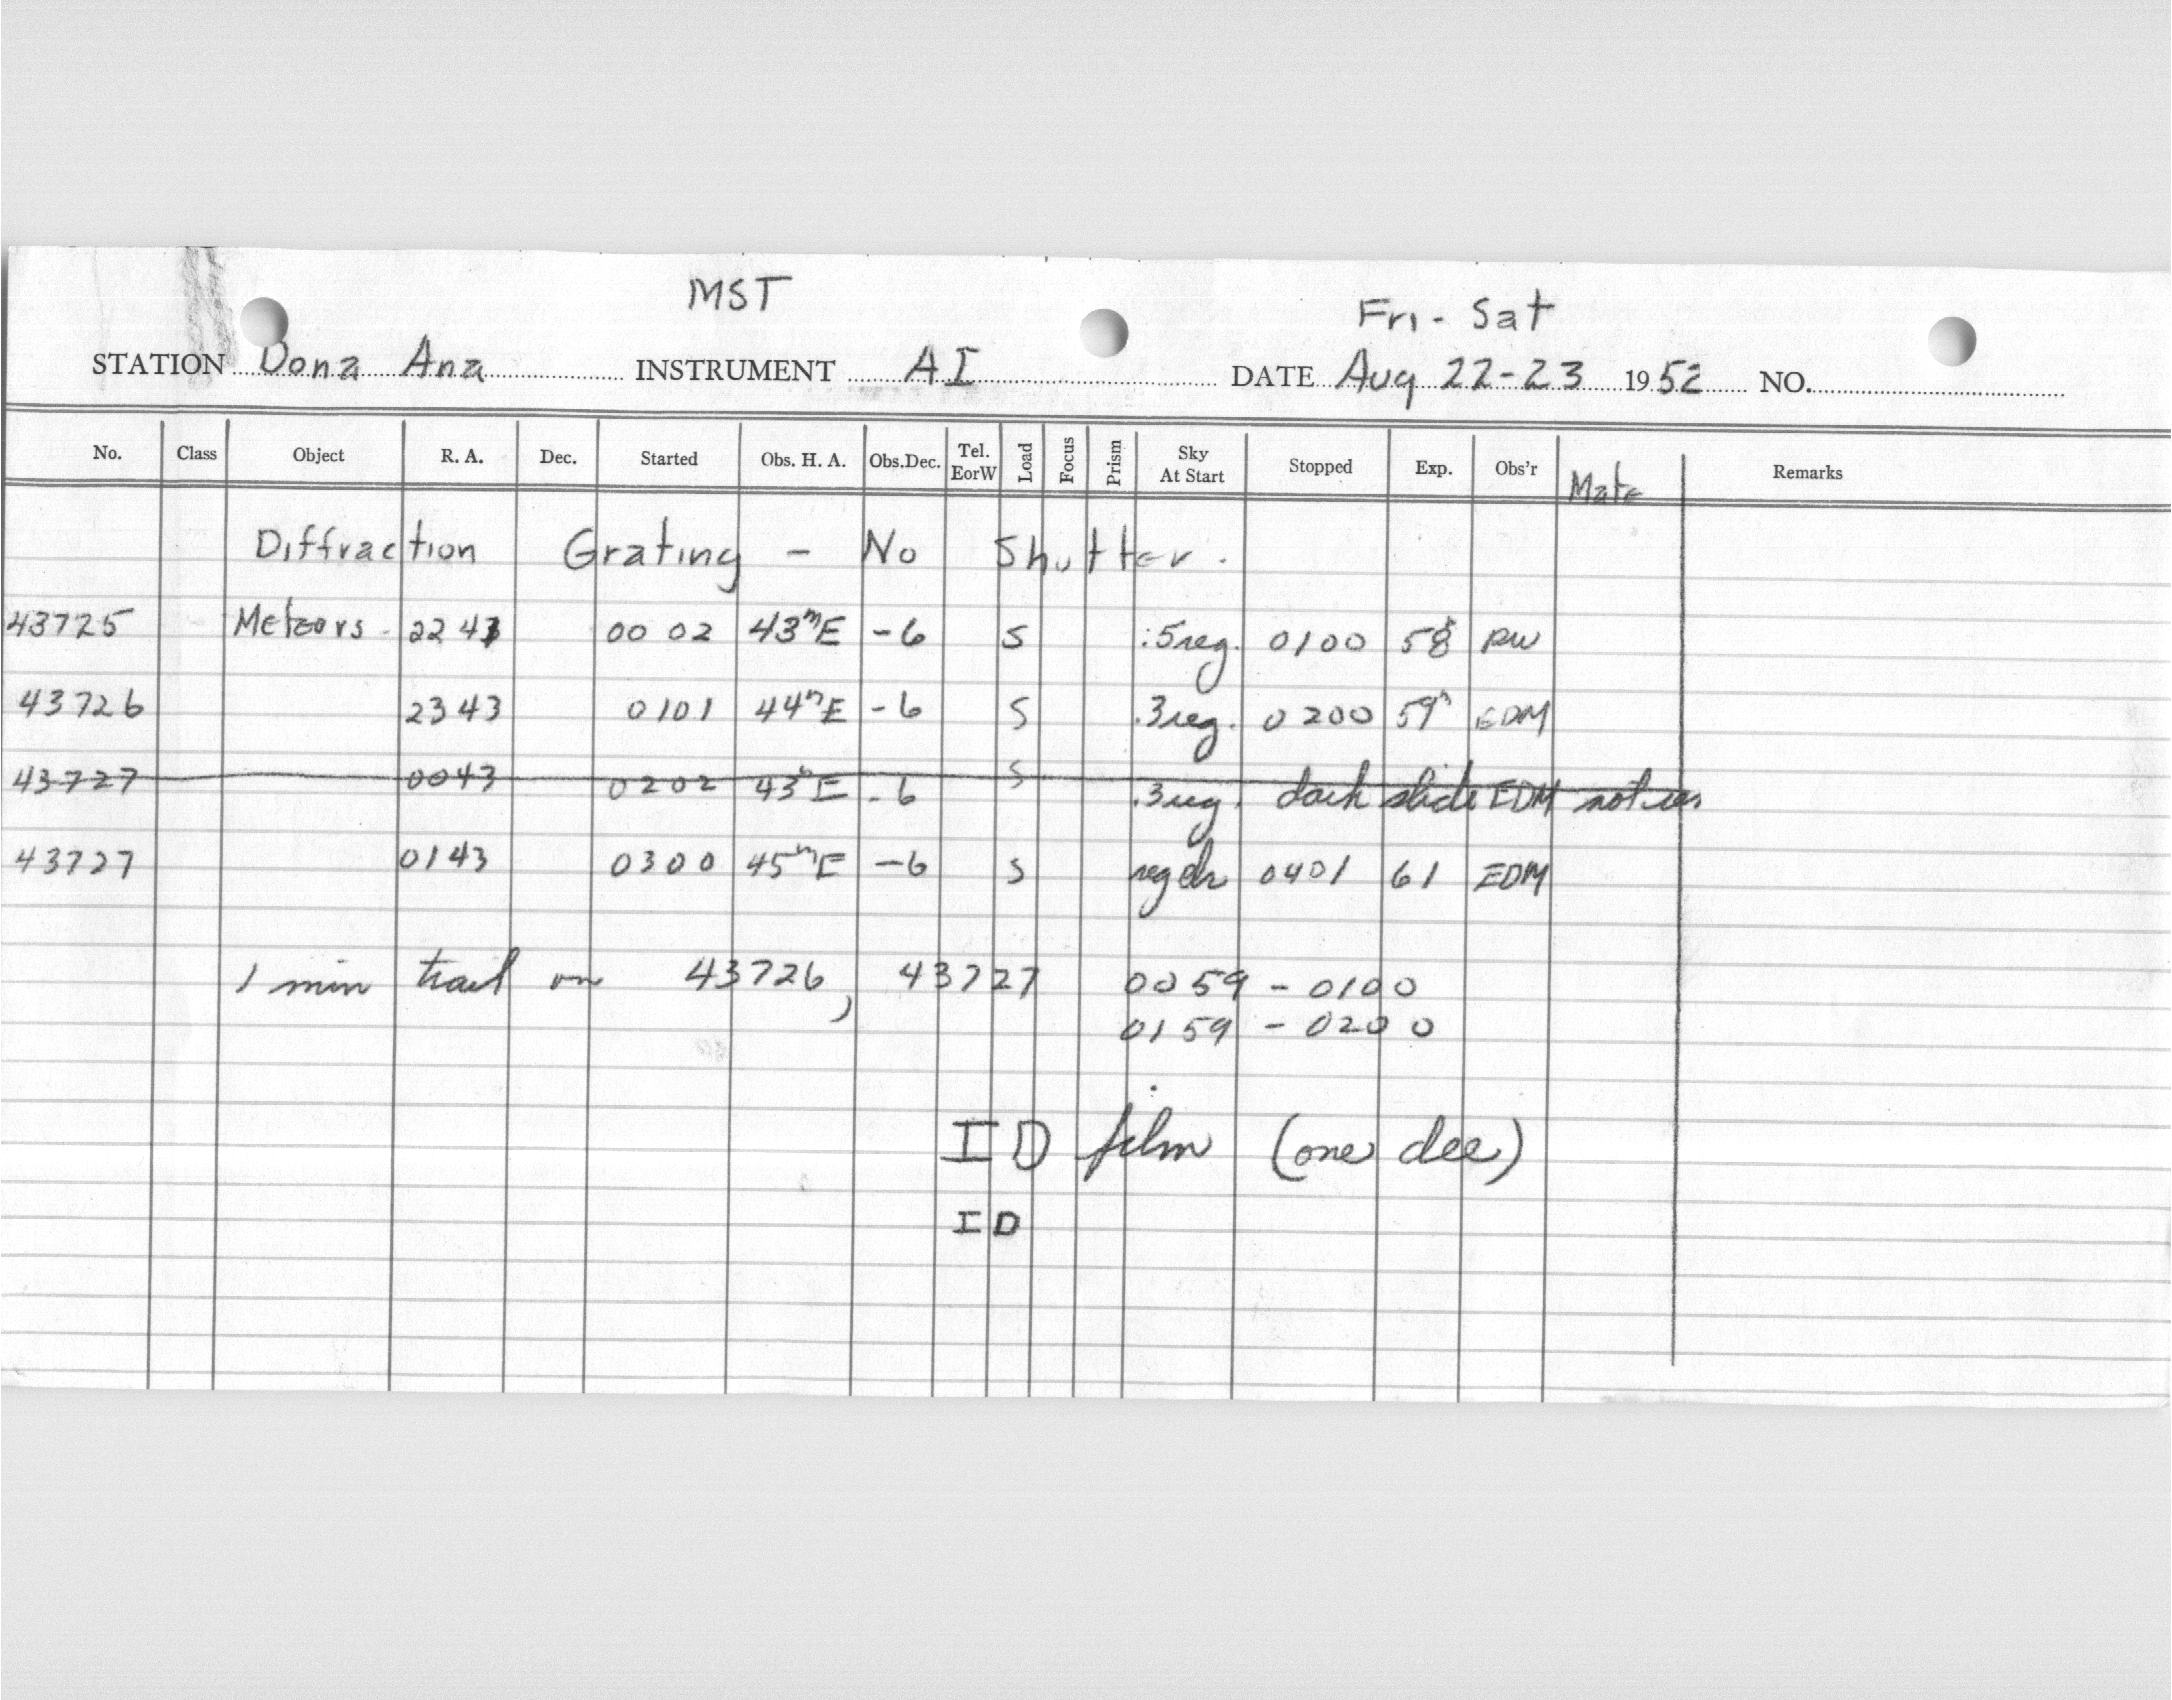 MST
Fri - Sat
STATION Dona Ana INSTRUMENT AI DATE Aug 22-23 1952 NO.
No. Class Object R. A. Dec. Started Obs. H. A. Obs.Dec. Tel. EorW Load Focus Prism Sky At Start Stopped Exp. Obs'r Mate Remarks
Diffraction Grating - No Shutter.
43725 Meteors 2243 0002 43mE -6 S .5reg. 0100 58 PW
43726 2343 0101 44mE -6 S .3reg. 0200 59m EDM
43727 0043 0202 43mE -6 S .3reg. dark slide EDM not
43727 0143 0300 45mE -6 S reg 0401 61 EDM
1 min trail on 43726, 43727 0059 - 0100
0159 - 0200
ID film (one dee)
ID